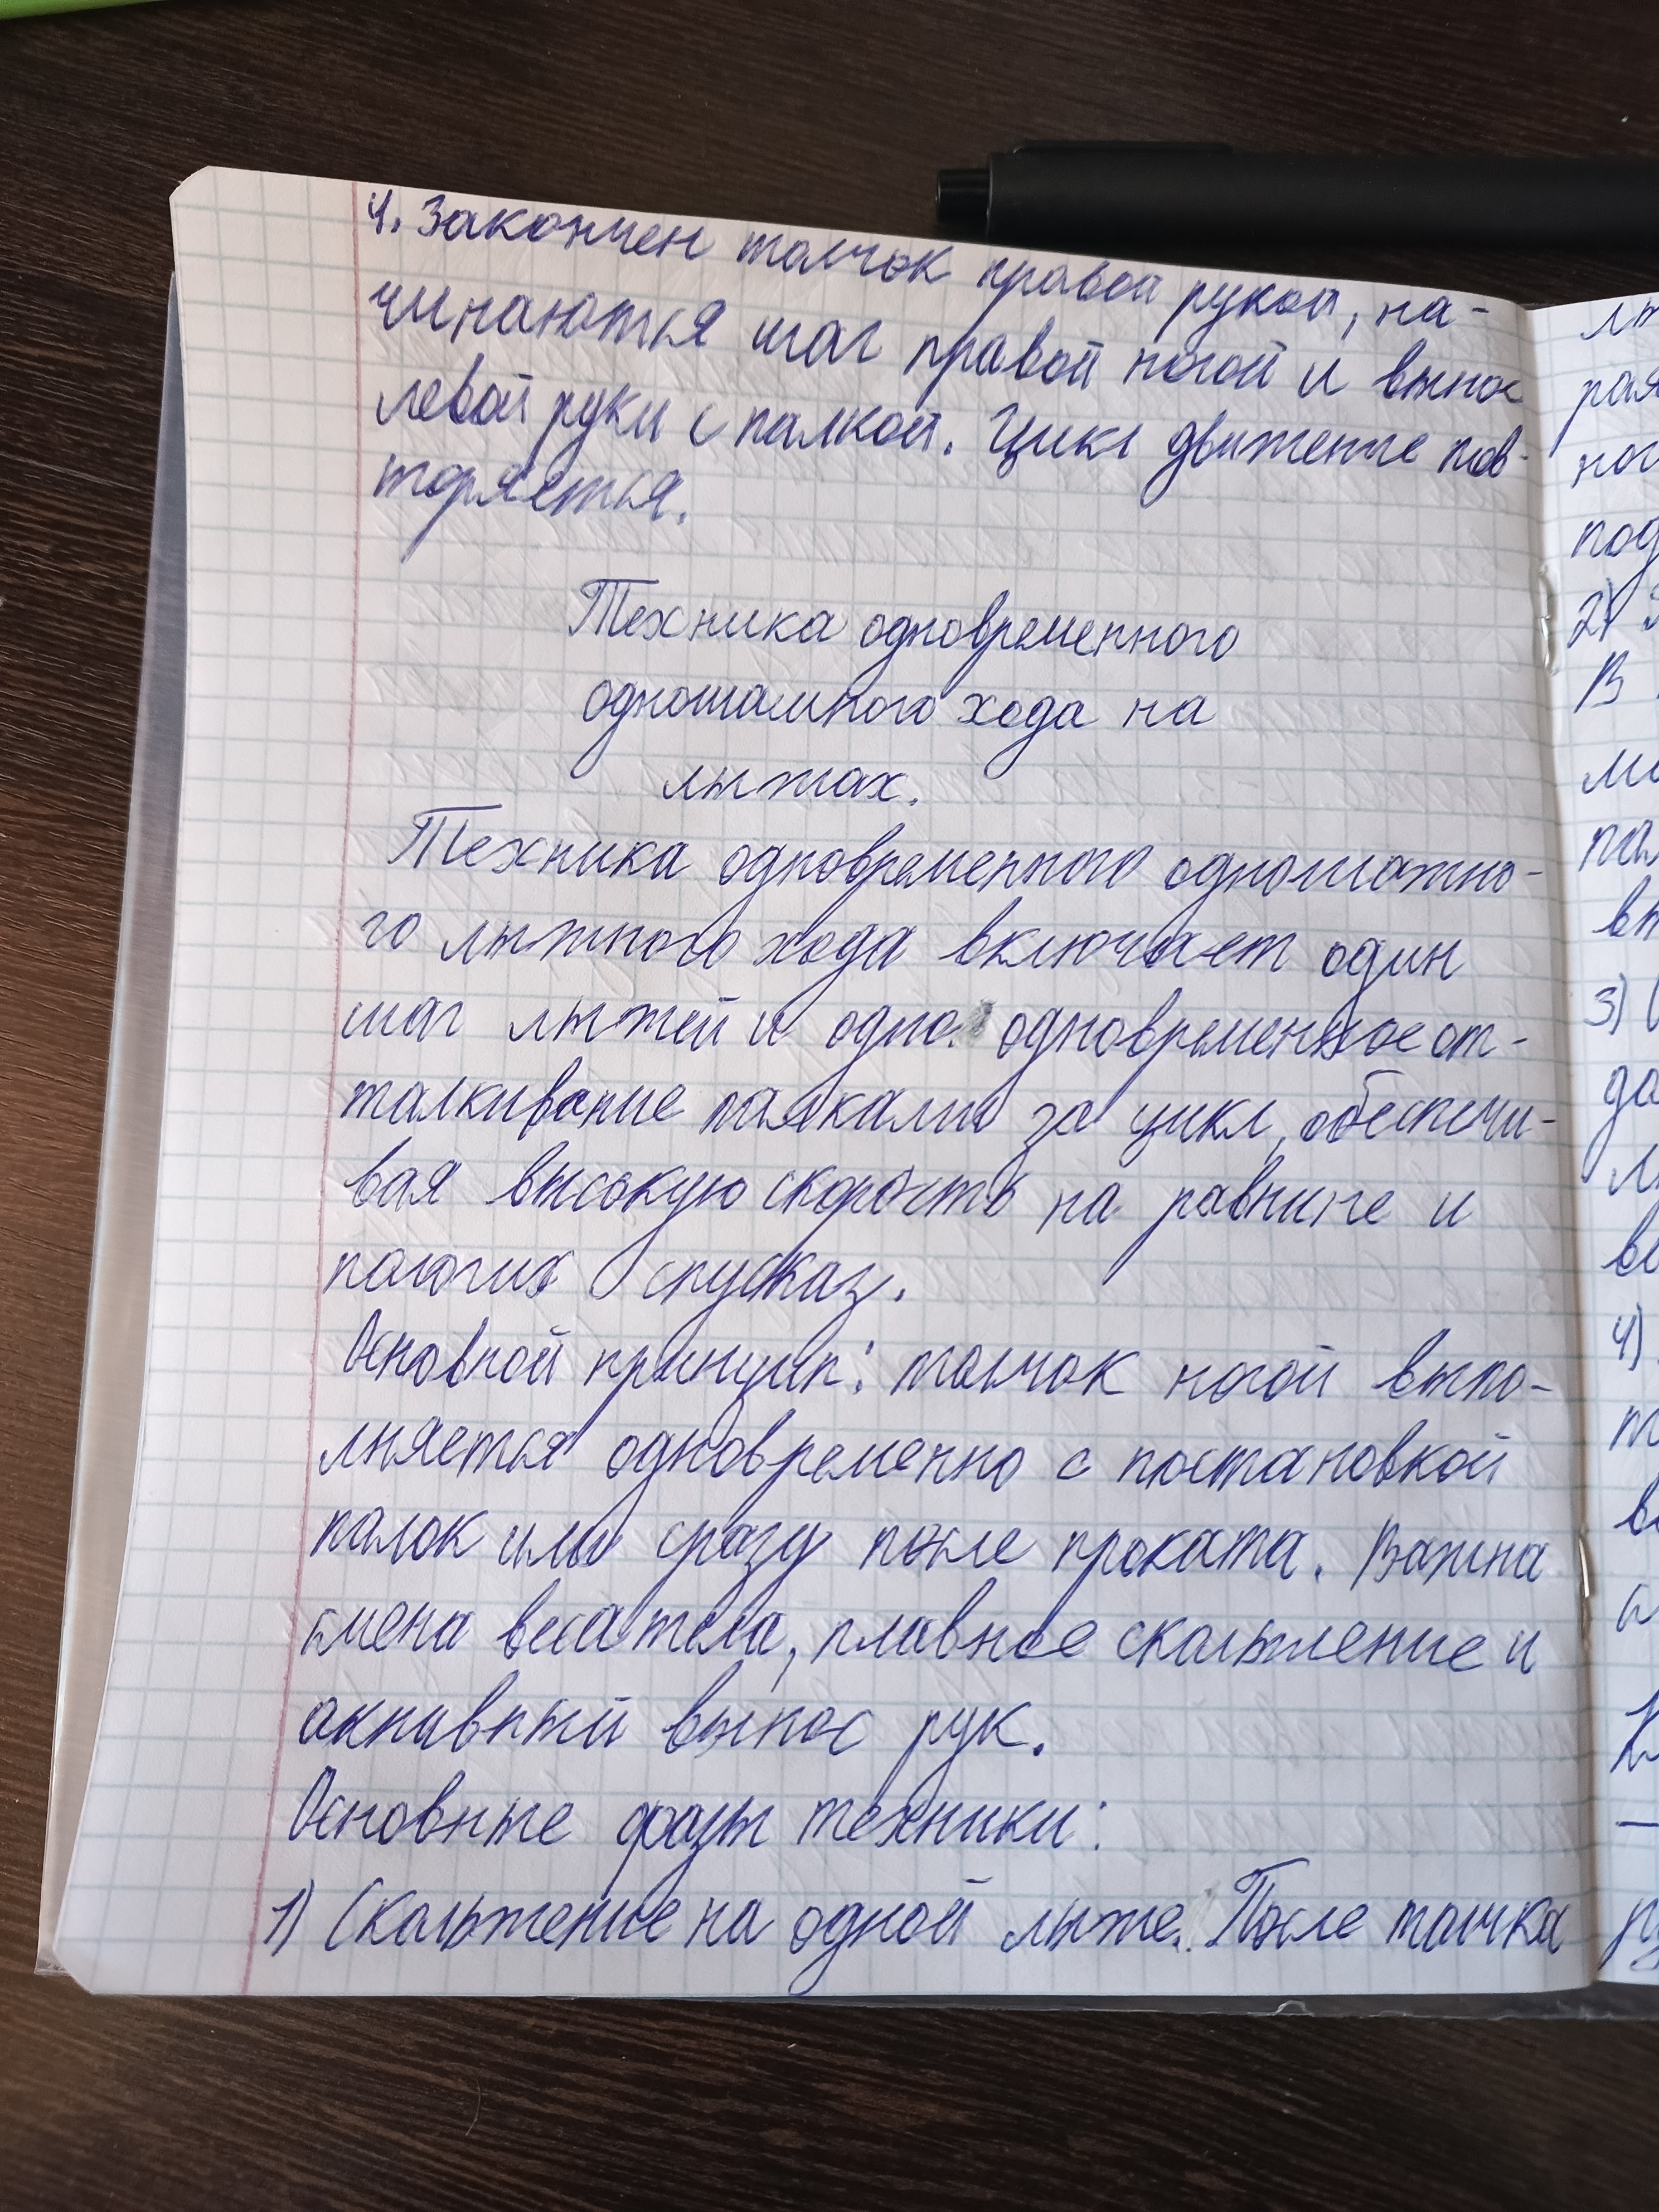 4. Закончен толчок правой рукой, на-
чинаются шаг правой ногой и вынос
левой руки с палкой. Цикл движение пов-
торяется.
Техника одновременного
одношашного хода на
лыжах.
Техника одновременного одношажно-
го лыжного хода включает один
шаг лыжей и одно одновременное от-
талкивание палками за цикл, обеспечи-
вая высокую скорость на равнине и
пологих спусках.
Основной принцип: толчок ногой выпо-
лняется одновременно с постановкой
палок или сразу после проката. Важна
смена веса тела, плавное скольжение и
активный вынос рук.
Основные фазы техники:
1) Скольжение на одной лыже. После толчка
2)
В
3)
4)